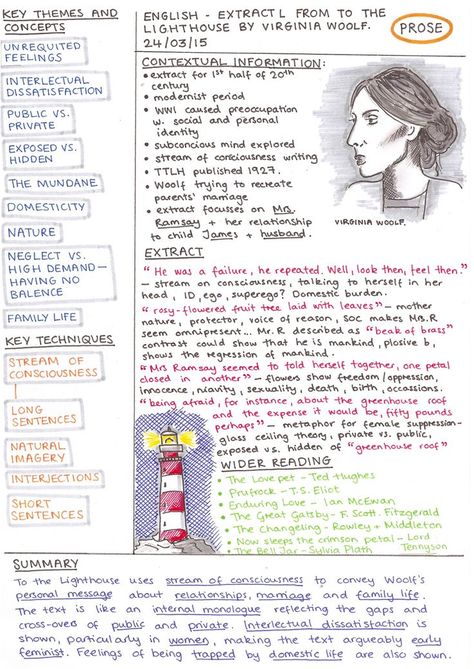 KEY THEMES AND
CONCEPTS
UNREQUITED
FEELINGS
INTERLECTUAL
DISSATISFACTION
PUBLIC VS.
PRIVATE
EXPOSED VS.
HIDDEN
THE MUNDANE
DOMESTICITY
NATURE
NEGLECT VS.
HIGH DEMAND—
HAVING NO
BALENCE
FAMILY LIFE
KEY TECHNIQUES
STREAM OF
CONSCIOUSNESS
LONG
SENTENCES
NATURAL
IMAGERY
INTERJECTIONS
SHORT
SENTENCES
ENGLISH - EXTRACT L FROM TO THE
LIGHTHOUSE BY VIRGINIA WOOLF.
24/03/15
PROSE
CONTEXTUAL INFORMATION:
• extract for 1st half of 20th
century
• modernist period
• WWI caused preoccupation
w. social and personal
identity
• subconcious mind explored
• stream of conciousness writing
• TTLH published 1927.
• Woolf trying to recreate
parents' marriage
• extract focusses on Mrs.
Ramsay + her relationship
to child James + husband.
VIRGINIA WOOLF.
EXTRACT
"He was a failure, he repeated. Well, look then, feel then."
— stream on consciousness, talking to herself in her
head, ID, ego, superego? Domestic burden.
"rosy-flowered fruit tree laid with leaves" — mother
nature, protector, voice of reason, SOC makes Mrs.R
seem omnipresent... Mr.R described as "beak of brass"
contrast could show that he is mankind, plosive b,
shows the regression of mankind.
"Mrs Ramsay seemed to fold herself together, one petal
closed in another" — flowers show freedom/oppression,
innocence, niavity, sexuality, death, birth, occassions.
"being afraid, for instance, about the greenhouse roof
and the expense it would be, fifty pounds
perhaps" — metaphor for female suppression-
glass ceiling theory, private vs. public,
exposed vs. hidden of "greenhouse roof"
WIDER READING
• The Lovepet - Ted Hughes
• Prufrock - T.S. Eliot
• Enduring Love - Ian McEwan
• The Great Gatsby - F. Scott. Fitzgerald
• The Changeling - Rowley + Middleton
• Now sleeps the crimson petal - Lord
Tennyson
• The Bell Jar - Sylvia Plath
SUMMARY
To the Lighthouse uses stream of consciousness to convey Woolf's
personal message about relationships, marriage and family life.
The text is like an internal monologue reflecting the gaps and
cross-overs of public and private. Interlectual dissatisfaction is
shown, particularly in women, making the text argueably early
feminist. Feelings of being trapped by domestic life are also shown.